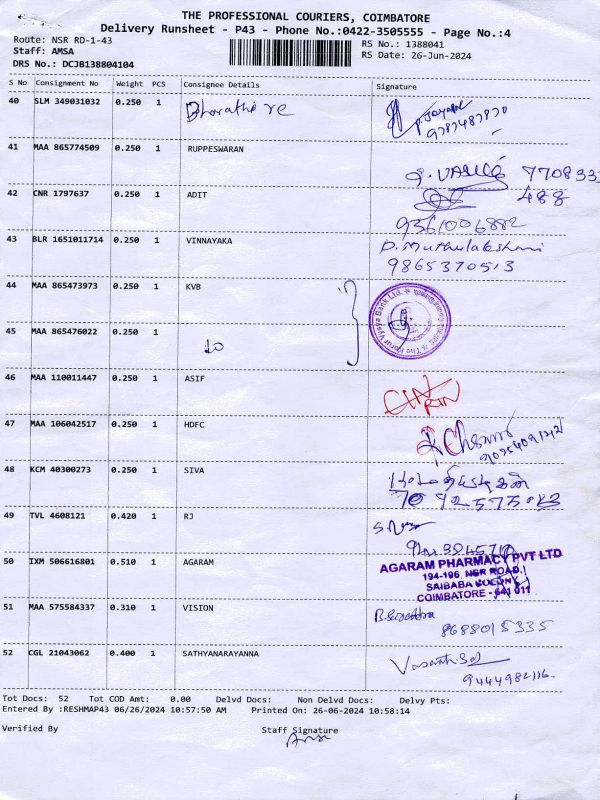 THE PROFESSIONAL COURIERS, COIMBATORE
Delivery Runsheet - P43 - Phone No.:0422-3505555 - Page No.:4
Route: NSR RD-1-43
RS No.: 1388041
Staff: AMSA
RS Date: 26-Jun-2024
DRS No.: DCJB138804104
S No Consignment No Weight PCS Consignee Details Signature
40 SLM 349031032 0.250 1 Bharathi re
9787487870
41 MAA 865774509 0.250 1 RUPPESWARAN
7708333
42 CNR 1797637 0.250 1 ADIT
488
9361006882
43 BLR 1651011714 0.250 1 VINNAYAKA P. Muthulakshmi
9865370513
44 MAA 865473973 0.250 1 KVB
45 MAA 865476022 0.250 1
46 MAA 110011447 0.250 1 ASIF
47 MAA 106042517 0.250 1 HDFC
48 KCM 40300273 0.250 1 SIVA
49 TVL 4608121 0.420 1 RJ
50 IXM 506616801 0.510 1 AGARAM AGARAM PHARMACY PVT LTD
194-196, NSR ROAD,
SAIBABA COLONY
COIMBATORE - 641 011
51 MAA 575584337 0.310 1 VISION
8688015335
52 CGL 21043062 0.400 1 SATHYANARAYANNA
9444982116.
Tot Docs: 52 Tot COD Amt: 0.00 Delvd Docs: Non Delvd Docs: Delvy Pts:
Entered By :RESHMAP43 06/26/2024 10:57:50 AM Printed On: 26-06-2024 10:58:14
Verified By Staff Signature